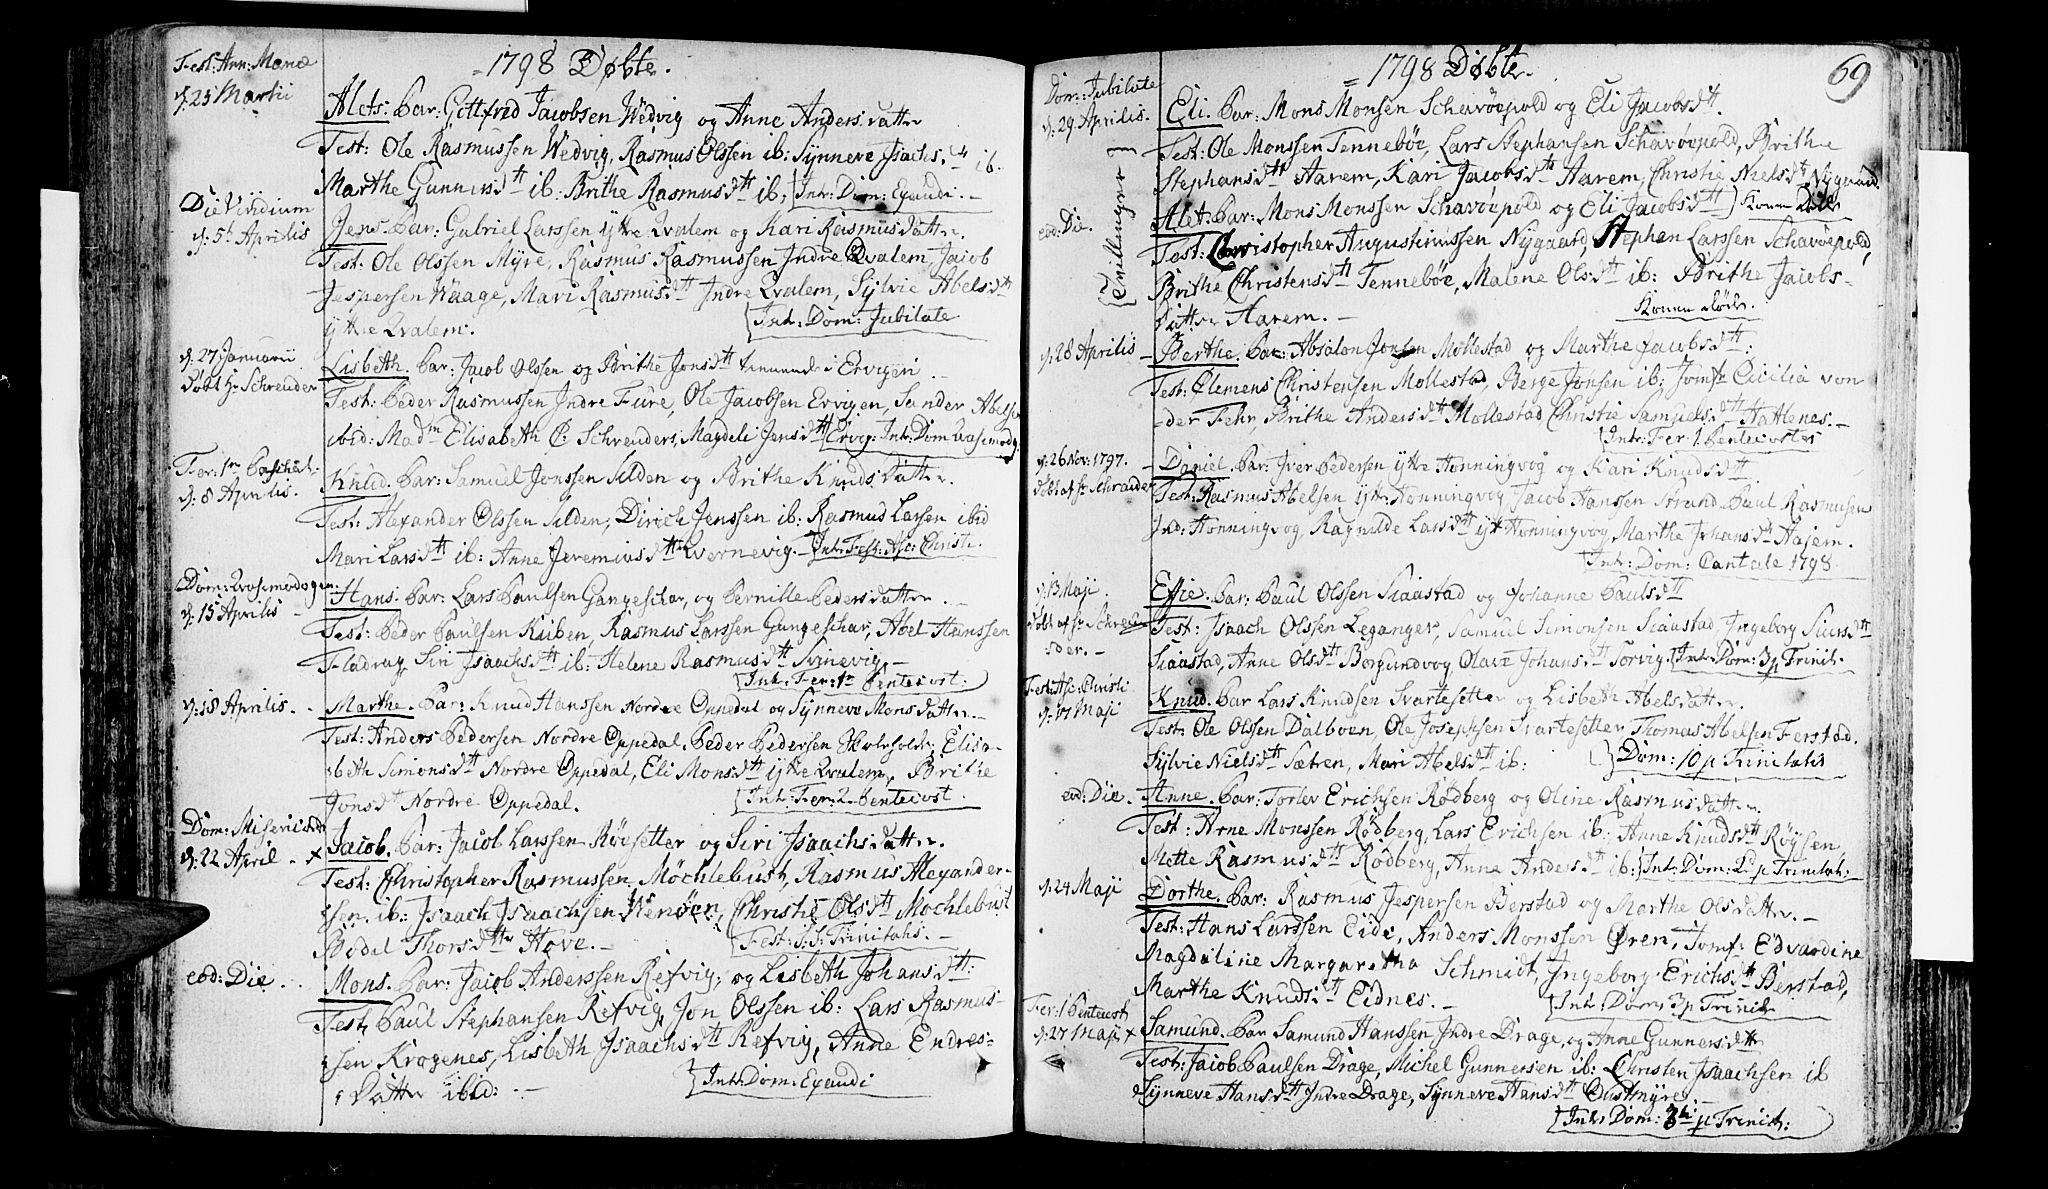 = 1798 Døbte.
Fest: Ann: Mariæ
d: 25 Martii
Alets: Par: Gottfrid Jacobsen Wedvig og Anne Anders datter
Test: Ole Rasmussen Wedvig, Rasmus Olssen ib: Synneve Isachsd ib.
Marthe Gunnersdtt ib: Brithe Rasmusdtt ib: Intr: Dom: Exaudi. -
Die Viridium
d: 5t Aprilis
Jens. Par: Gabriel Larssen ytre Qvalem og Kari Rasmusdatter.
Test: Ole Olssen Myre, Rasmus Rasmussen Indre Qvalem, Jacob
Jespersen Waage, Mari Rasmusdtt Indre Qvalem, Sylvie Abelsdtt
ytre Qvalem.
Intr: Dom: Jubilate
d: 27 Januarii
døbt Hr Schreuder
Lisbeth. Par: Jacob Olssen og Brithe Jonsdtt tienende i Ervigen
Test: Peder Rasmussen Indre Fure, Ole Jacobsen Ervigen, Sander Abels
ibid: Madm Elisabeth C: Schreuders, Magdeli Jensdtt Ervig: Intr: Dom Qvasimodog:
Fer: 1ma Paschat:
d: 8 Aprilis.
Knud. Par: Samuel Jonssen Silden og Brithe Knudsdatter.
Test: Alexander Olssen Silden, Dirich Jenssen ib: Rasmus Larssen ibid
Mari Larsdtt ib: Anne Jeremiusdtt Qvernevig. - Intr: Fest: Asc: Christi.
Dom: Qvasimodogen:
d: 15 Aprilis -
Hans. Par: Lars Paulsen Gangeskar, og Pernille Pedersdatter. -
Test: Peder Paulsen Kuben, Rasmus Larssen Gangeskar, Abel Hanssen
Fladrag, Siri Isaachsdtt ib: Helene Rasmusdtt Svinevig -
Intr: Fer: 1ma Pentecost:
d: 18 Aprilis.
Marthe. Par: Knud Hanssen Nordre Oppedal og Synneve Monsdatter. -
Test: Anders Pedersen Nordre Oppedal. Peder Pedersen Skoleholder, Elisa-
beth Simonsdtt Nordre Oppedal, Eli Monsdtt ytre Qvalem, Brithe
Jonsdtt Nordre Oppedal.
Intr: Fer: 2 Pentecost
Dom: Misericord:
d: 22 April
Jacob. Par: Jacob Larssen Röesetter og Siri Isaachsdatter.
Test: Christopher Rasmussen Möchlebust, Rasmus Alexander-
sen ib: Isaach Isaachsen Wenöen, Christi Olsdtt Mochlebust
Bödal Thorsdtt Hove. -
Fest: S: S: Trinitatis. -
eod: Die
Mons. Par: Jacob Anderssen Refvig, og Lisbeth Johansdtt:
Test. Paul Stephansen Refvig, Jon Olssen ib: Lars Rasmus-
sen Krogenes, Lisbeth Isaachsdtt Refvig, Anne Endres-
datter ibid: -
Intr: Dom: Exaudi
= 1798 Døbte.
69
Dom: Jubilate
d: 29 Aprilis.
Tvillinger
Eli. Par: Mons Monsen Schavöepold og Eli Jacobsdtt.
Test: Ole Monssen Tenneböe, Lars Stephansen Schavöepold, Brithe
Stephansdtt Aarem, Kari Jacobsdtt Aarem, Christie Nielsdtt Nygaard.
eod: Die.
Alet: Par: Mons Monssen Schavöepold og Eli Jacobsdtt Konen död
Test: Christopher Augustinussen Nygaard, Stephen Larssen Schavöepold,
Brithe Christensdtt Tenneböe, Malene Olsdtt ib: Brithe Jacobs-
datter Aarem. -
Konen döde.
d: 28 Aprilis
Berthe. Par: Absalon Jonsen Mollestad og Marthe Jacobsdtt:
Test: Clemens Christensen Mollestad, Berge Jonsen ib: Jomfr Cicilia von
der Fehr, Brithe Andersdtt Mollestad Christie Samuelsdtt Hatlenes. -
Intr: Fer: 1 Pentecostes
d: 26 Nov: 1797.
døbt af Hr Schreuder
Daniel. Par: Iver Pedersen ytre Honningvog og Kari Knudsdtt
Test: Rasmus Abelsen ytr: Honningvig Jacob Hanssen Strand. Paul Rasmusen
Ind: Honningvog Ragnilde Larsdtt ytr Honningvog, Marthe Johansdtt Aasem.
Intr: Dom: Cantate 1798
d: 13 Maji.
døbt af Hr Schreu-
der. -
Effie. Par: Paul Olssen Siaastad og Johanne Paulsdtt
Test: Isaach Olssen Leganger, Samuel Simonsen Siaastad, Ingeborg Siursdtt
Siaastad, Anne Olsdtt Borgundvog Olave Johansdtt Torvig. Intr: Dom: 3 p Trinit.
Fest: Asc: Christi
d: 17 Maji
Knud. Par Lars Knudsen Svartesetter og Lisbeth Abelsdatter.
Test: Ole Olssen Dalboen, Ole Josephsen Svartesetter Thomas Abelsen Ferstad.
Sylvie Nielsdtt Sætren, Mari Abelsdtt ib:
Dom: 10 p Trinitatis
eod: Die.
Anne. Par: Torlev Erichsen Rödberg og Oline Rasmusdatter.
Test: Arne Monssen Rödberg, Lars Erichsen ib: Anne Knudsdtt Röysen,
Mette Rasmusdtt Rödberg, Anne Andersdtt ib: Intr: Dom: 2d p Trinitat:
d: 24 Maji
Dorthe. Par: Rasmus Jespersen Berstad og Marthe Olsdatter. -
Test: Hans Larssen Eide, Anders Monssen Ören, Jomf: Edvardine
Magdeline Margaretha Schmidt, Ingeborg Erichsdtt Berstad,
Marthe Knudsdtt Eidnes. -
Intr: Dom: 3 p Trinit
Fer: 1 Pentecost
d: 27 Maji
Samund. Par Samund Hanssen Indre Drage, og Anne Gunnersdtt
Test: Jacob Paulsen Drage, Michel Gunnersen ib: Christen Isaachsen ib
Synneve Hansdtt Indre Drage, Synneve Hansdtt Oustmyre. -
Intr: Dom: 3tie p Trinit: